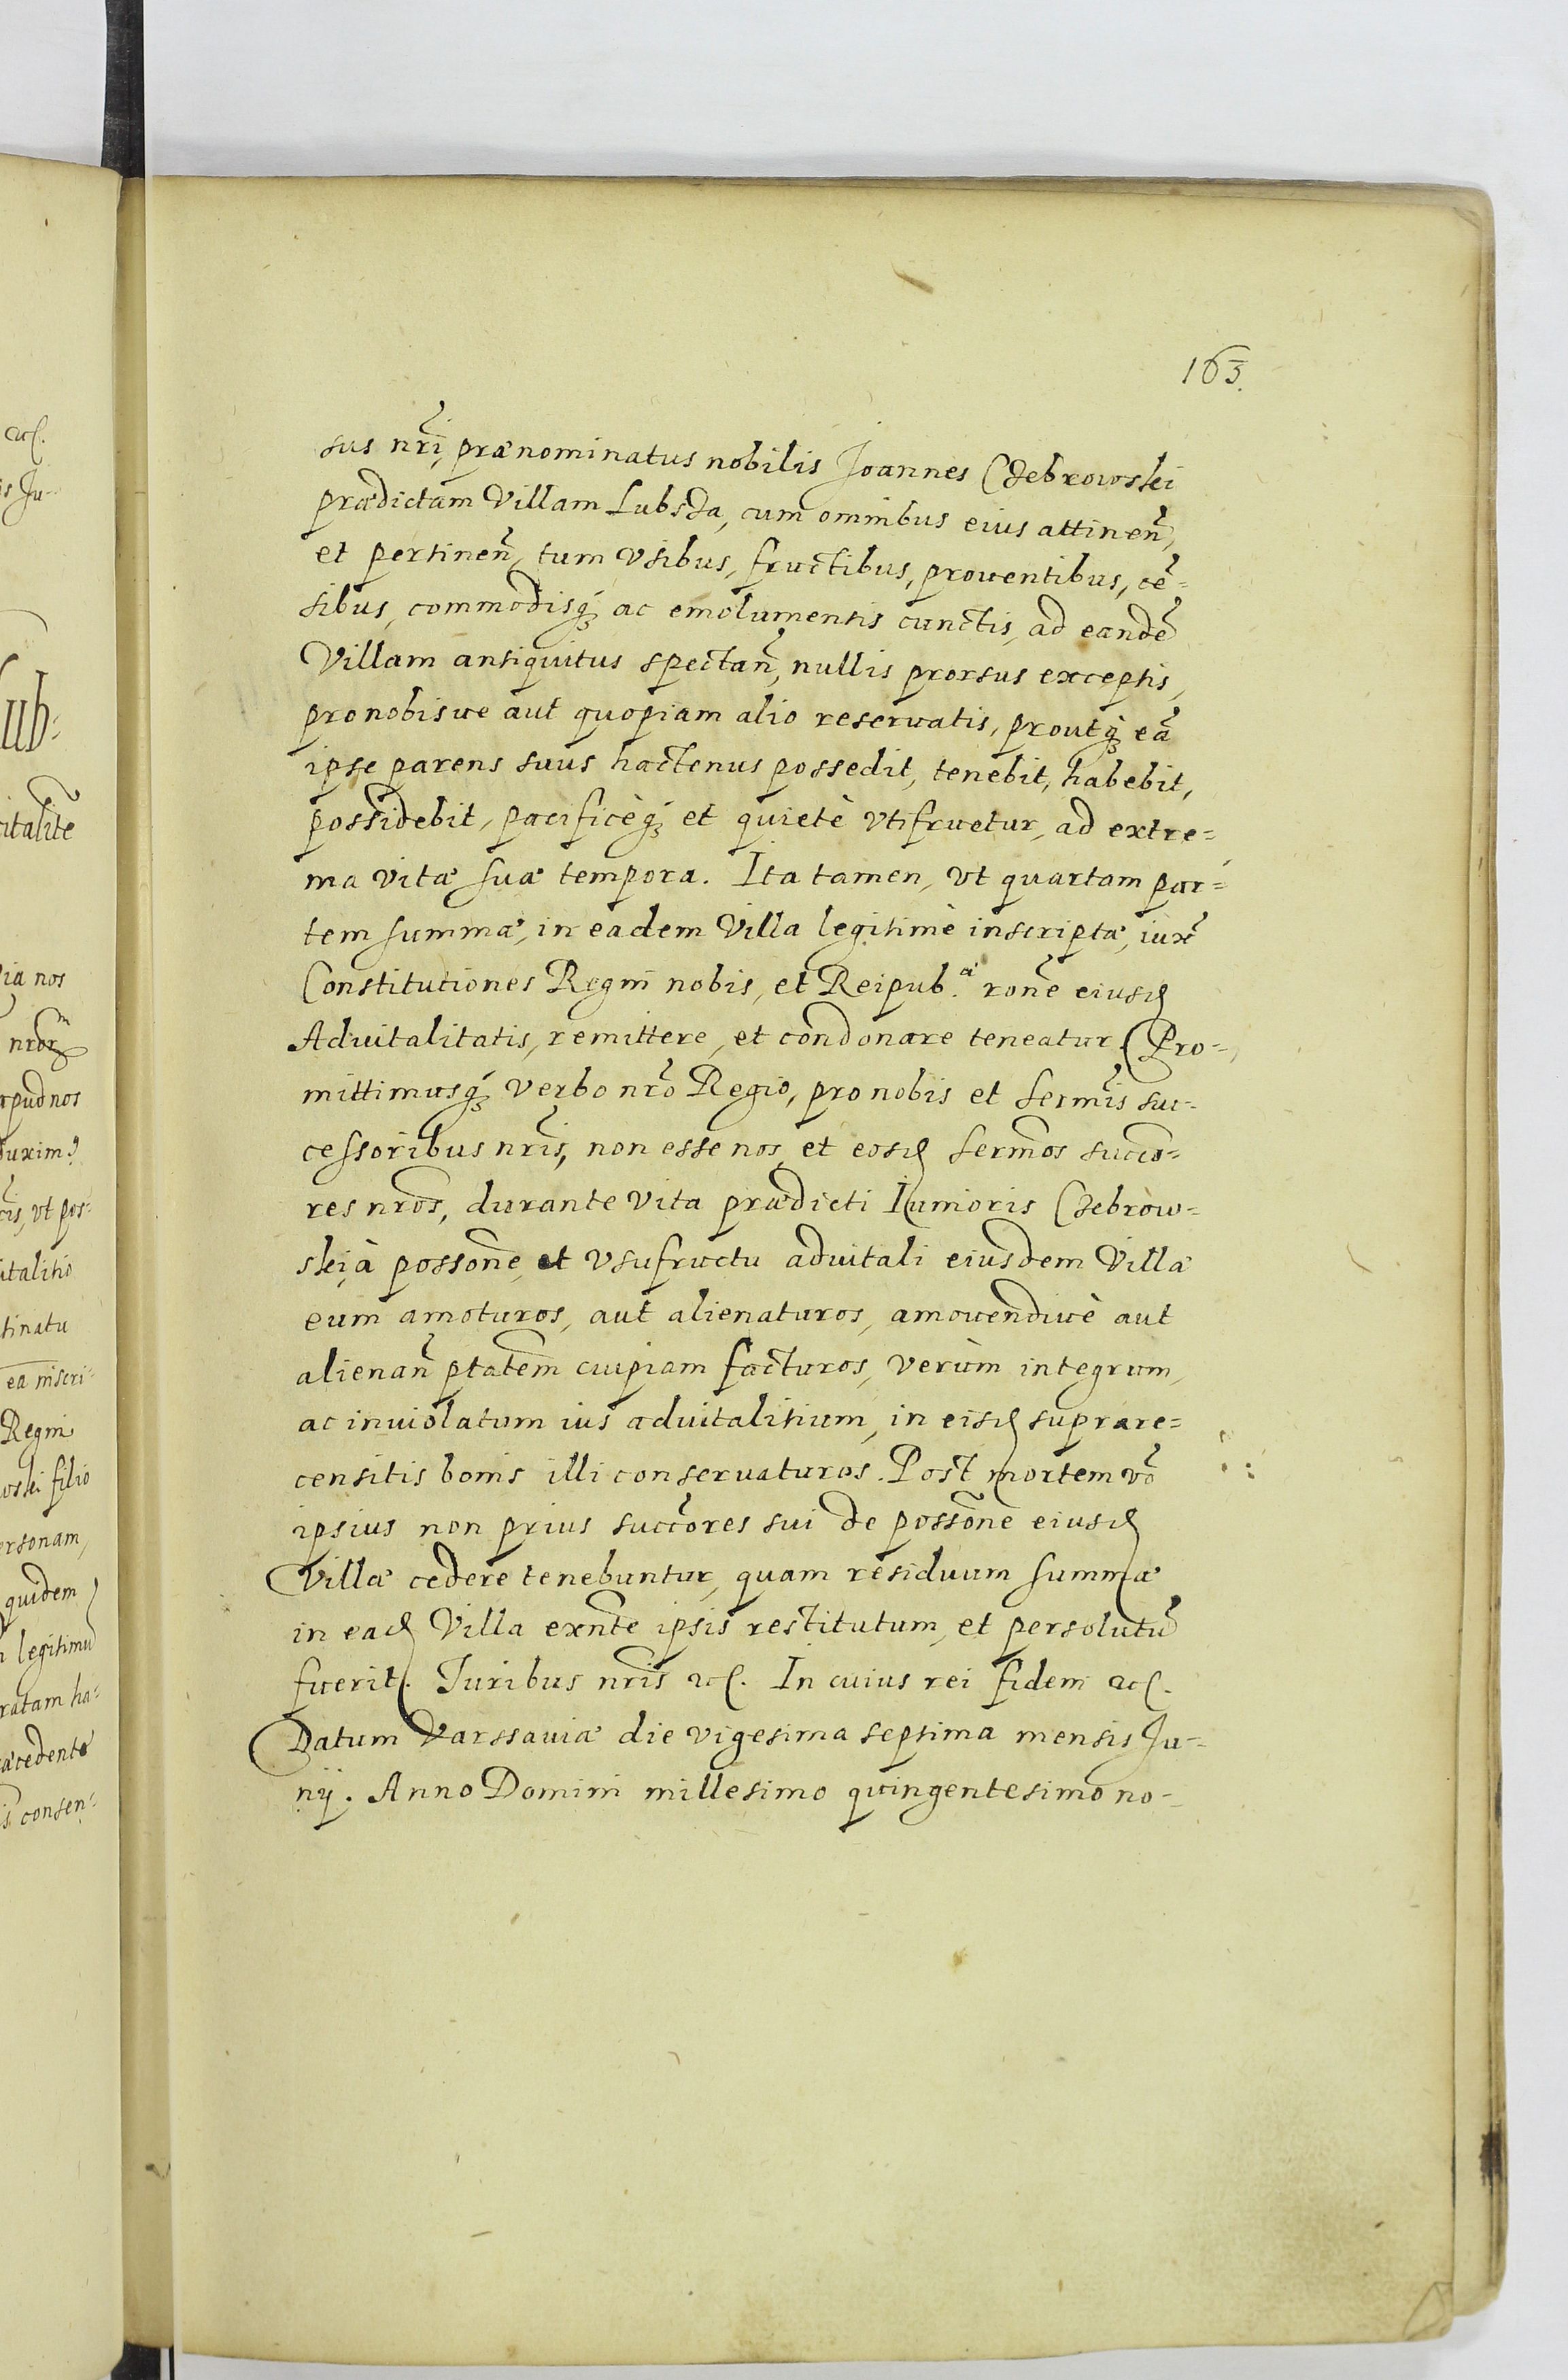 163.
sus nr̃i, prænominatus nobilis Joannes Czebrowski
prædictam Villam Lubsza, cum omnibus eius attinen̄,
et pertinen̄, tum vsibus, fructibus, prouentibus, cē=
sibus, commodisq́ȝ ac emolumentis cunctis, ad eandē
Villam antiquitus spectan̄, nullis prorsus exceptis,
pro nobisue aut quopiam alio reseruatis, proutq́ȝ eā
ipse parens suus hactenus possedit, tenebit, habebit,
possidebit, pacificèq́ȝ et quietè vtifruetur, ad extre=
ma vitæ suæ tempora. Ita tamen, vt quartam par=
tem summæ, in eadem Villa legitimè inscriptæ, iux̄
Constitutiones Regni nobis, et Reipub.æ ron̄e eiusd
Aduitalitatis, remittere, et condonare teneatur. Pro=
mittimusq́ȝ Verbo nr̄o Regio, pro nobis et Sermīs suc=
cessoribus nr̄is, non esse nos, et eosd Serm̄os succo=
res nr̄os, durante vita prædicti Iunioris Czebrow=
ski, à posson̄e, et vsufructu aduitali eiusdem Villæ
eum amoturos, aut alienaturos, amouendiuè aut
alienan̄ ptat̄em cuipiam facturos, verùm integrum,
ac inuiolatum ius aduitalitium, in eisd suprare=
censitis bonis illi conseruaturos. Post mortem vō
ipsius non prius succōres sui de possōne eiusd
Villæ cedere tenebuntur, quam residuum summæ
in ead Villa exn̄te ipsis restitutum, et persolutū
fuerit. Juribus nr̄is &c. In cuius rei fidem &c.
Datum Varssauiæ die vigesima septima mensis Ju=
nij. Anno Domini millesimo quingentesimo no=